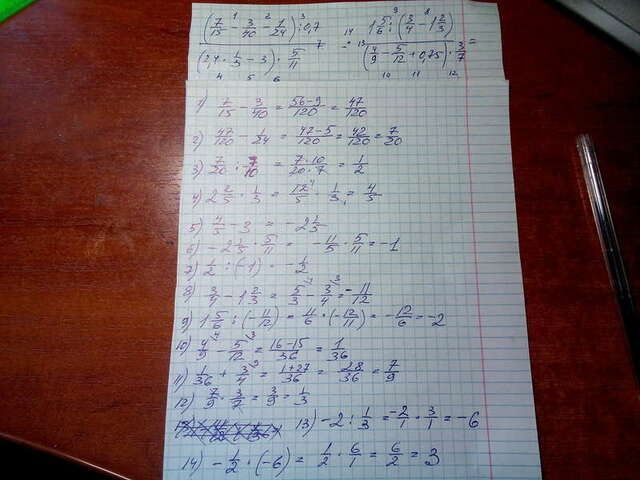 (7/15 - 3/40 - 1/24) : 0,7 / (2,4 · 1/3 - 3) · 5/11 - 1 5/6 : (3/4 - 1 2/3) / (4/9 - 5/12 + 0,75) · 3/7 =
1) 7/15 - 3/40 = 56-9/120 = 47/120
2) 47/120 - 1/24 = 47-5/120 = 42/120 = 7/20
3) 7/20 : 7/10 = 7·10/20·7 = 1/2
4) 2 2/5 · 1/3 = 12/5 · 1/3 = 4/5
5) 4/5 - 3 = -2 1/5
6) -2 1/5 · 5/11 = -11/5 · 5/11 = -1
7) 1/2 : (-1) = -1/2
8) 3/4 - 1 2/3 = 5/3 - 3/4 = -11/12
9) 1 5/6 : (-11/12) = 11/6 · (-12/11) = -12/6 = -2
10) 4/9 - 5/12 = 16-15/36 = 1/36
11) 1/36 + 3/4 = 1+27/36 = 28/36 = 7/9
12) 7/9 · 3/7 = 3/9 = 1/3
13) -2 : 1/3 = -2/1 · 3/1 = -6
14) -1/2 · (-6) = 1/2 · 6/1 = 6/2 = 3